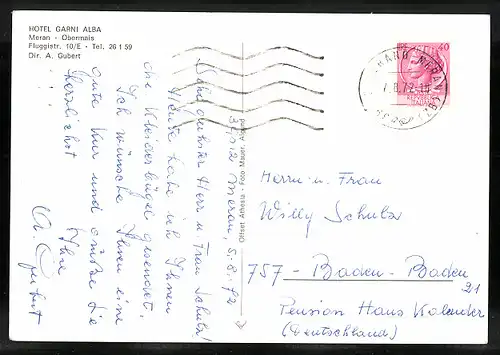 HOTEL GARNI ALBA
Meran - Obermais
Fluggistr. 10/E - Tel. 26 1 59
Dir. A. Gubert
Meran, 5.8.72
Sehr geehrter Herr u. Frau Schulz!
Heute habe ich Ihnen
die Kleiderbügel gesendet.
Ich wünsche Ihnen eine
gute Kur und grüße Sie
herzlichst
Ihre
Offset Athesia - Foto Mauer,
40
Herrn u. Frau
Willy Schulz
757 - Baden-Baden
21
Pension Haus Kalander
(Deutschland)